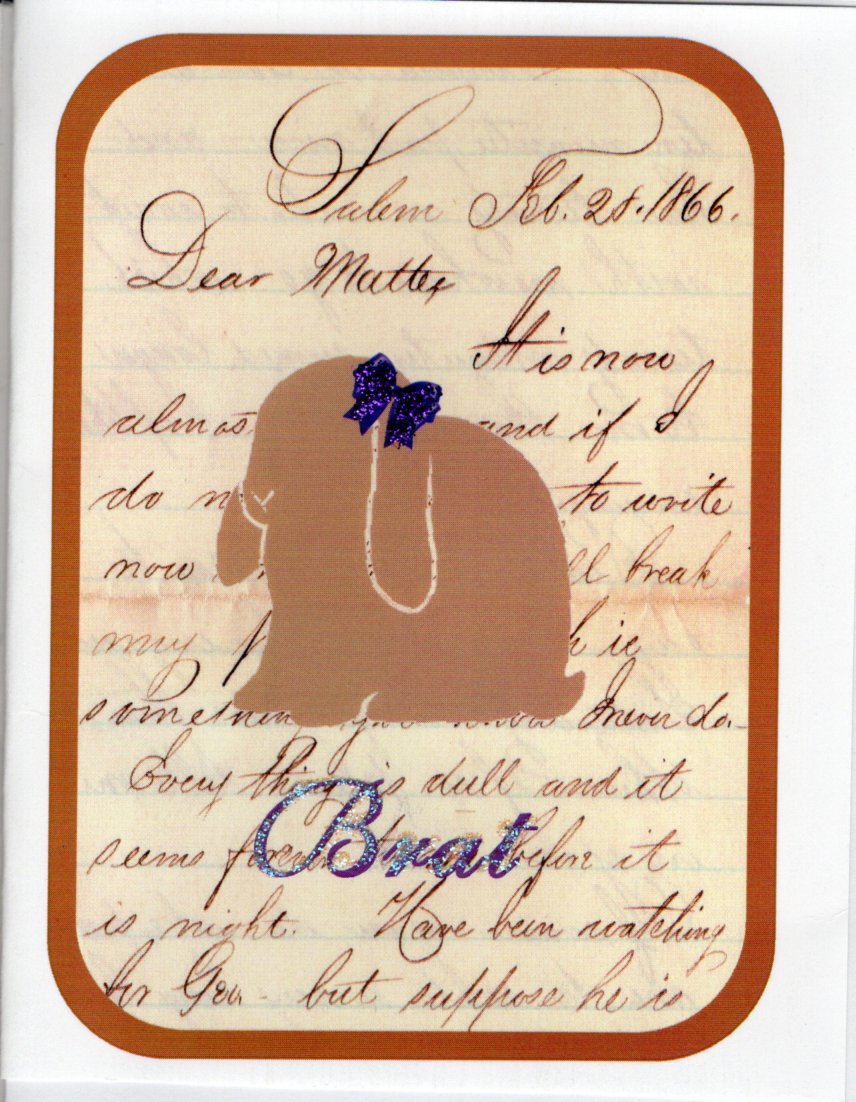 Salem Feb. 28. 1866.
Dear Matter
It is now
almos and if I
do n to write
now ll break
my p h is
somethin you know I never do.
Every thing is dull and it
seems before it
Brat
is night. Have been watching
for Geo. - but suppose he is